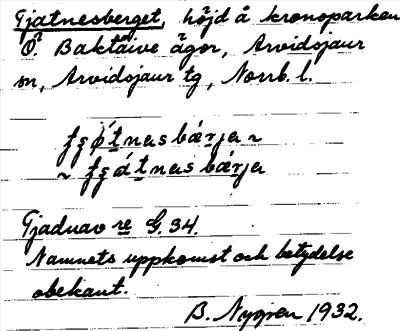 Tjatnesberget, höjd å kronoparken
Ö. Baktåive ägor, Arvidsjaur
sn, Arvidsjaur tg, Norrb. l.
Tjadnav re G. 34.
Namnets uppkomst och betydelse
obekant.
B. Nygren 1932.